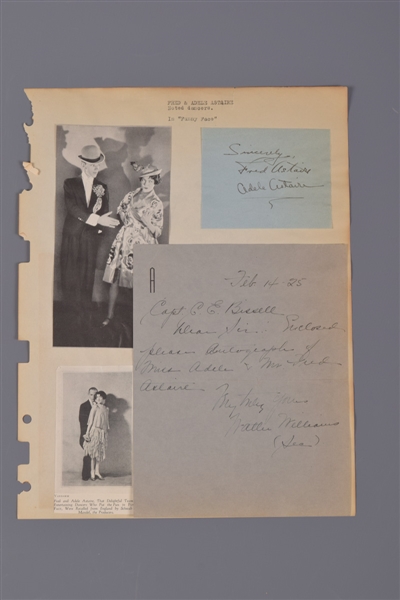 FRED & ADELE ASTAIRE
Noted dancers.
in "Funny Face"
Sincerely
Fred Astaire
Adele Astaire
A
Feb 14 - 25
Capt C E Bissell
Dear Sir: Enclosed
please autographs of
Miss Adele & Mr Fred
Astaire.
Very Truly Yours
Williams
(Sec)
Fred and Adele Astaire, That Delightful
Dancers Who
Were Recalled from England by
His Producers